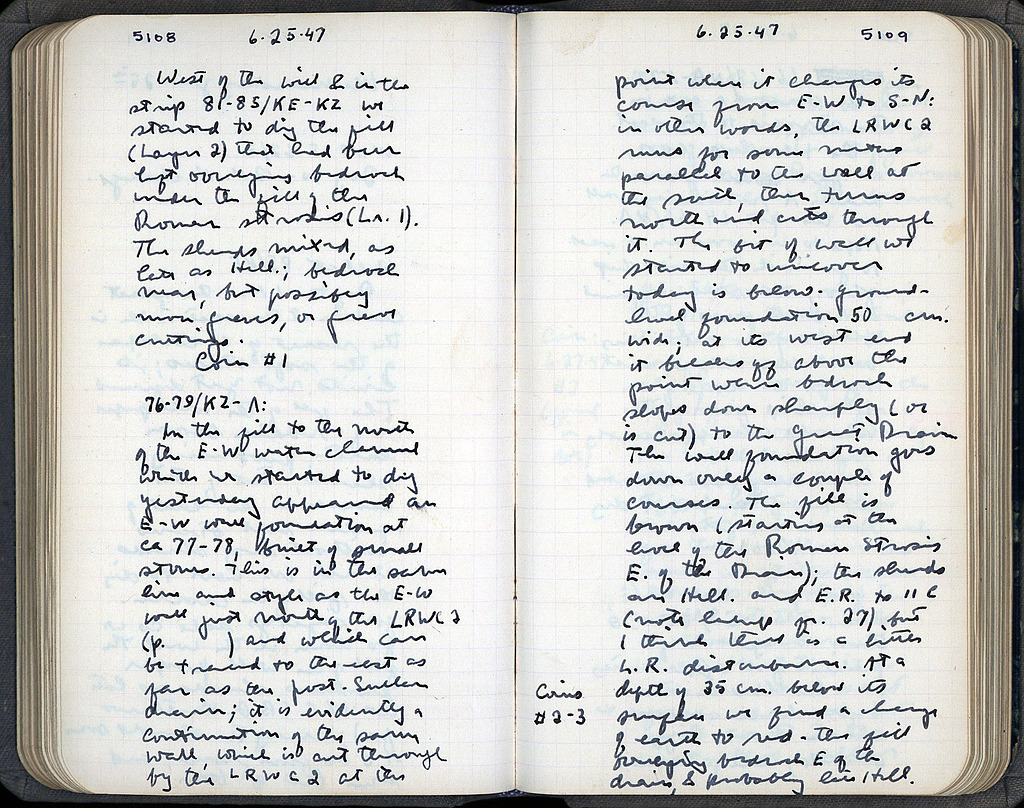 5108 6.25.47
West of the well & in the
strip 81-85/KE-KZ we
started to dig the fill
(Layer 2) that had been
left overlying bedrock
under the fill of the
Roman strosis (Lr. 1).
The sherds mixed, as
late as Hell.; bedrock
near, but possibly
more graves, or grave
cuttings.
Coin #1
76-79/KZ-Λ:
In the fill to the north
of the E-W water channel
which we started to dig
yesterday appeared an
E-W wall foundation at
ca 77-78, built of small
stones. This is in the same
line and style as the E-W
wall just north of the LRWC2
(p. ) and which can
be traced to the east as
far as the post-Sullan
drain; it is evidently a
continuation of the same
wall, which is cut through
by the LRWC2 at the
6.25.47 5109
point where it changes its
course from E-W to S-N:
in other words, the LRWC2
runs for some metres
parallel to the wall at
the south, then turns
north and cuts through
it. The bit of wall we
started to uncover
today is below-ground-
level foundation 50 cm.
wide; at its west end
it breaks off above the
point where bedrock
slopes down sharply (or
is cut) to the Great Drain
The wall foundation goes
down only a couple of
courses. The fill is
brown (starting at the
level of the Roman Strosis
E. of the Drain); the sherds
are Hell. and E.R. to II C
(note lamp 27) but
I think that is a later
L.R. disturbance. At a
depth of 35 cm. below its
surface we find a change
of earth to red - the fill
overlying bedrock E of the
drain, & probably like Hell.
Coins
#2-3